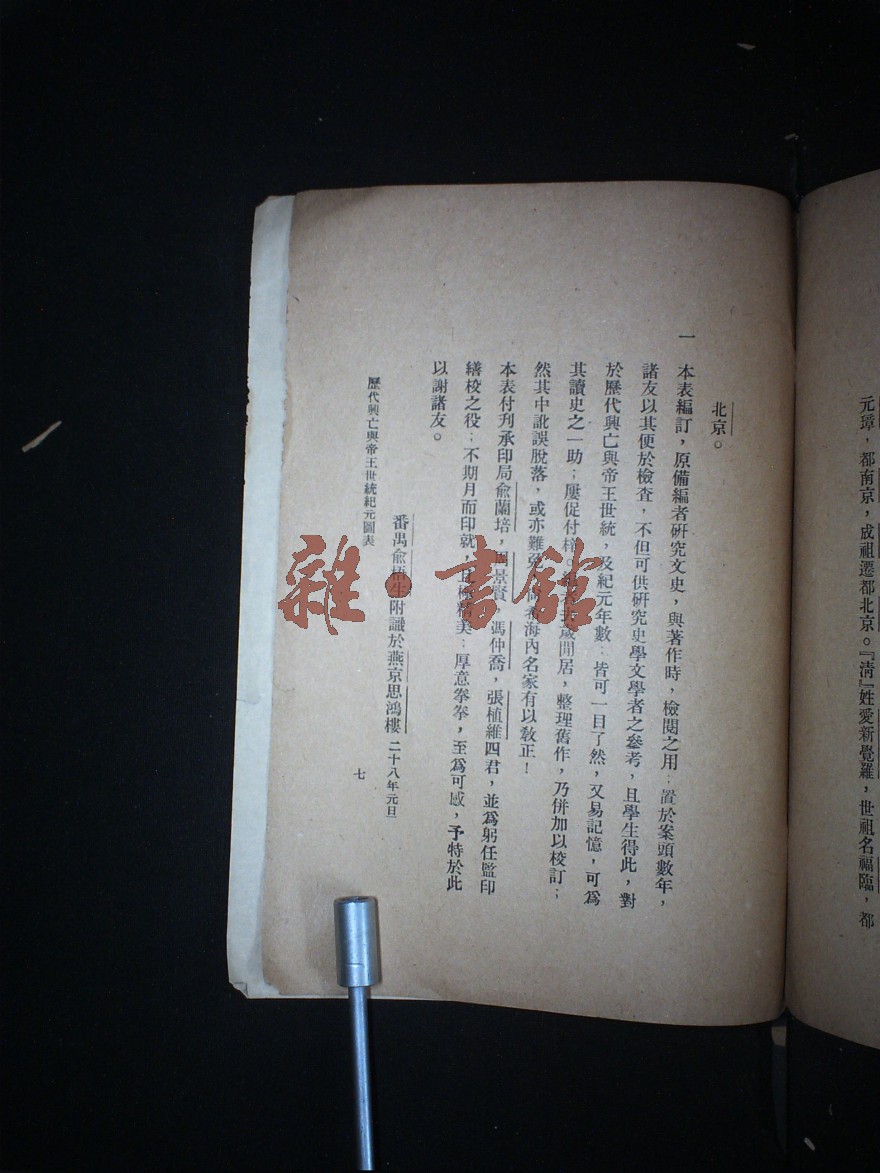 元璋，都南京，成祖遷都北京。『淸』姓愛新覺羅，世祖名福臨，都
北京。
一　本表編訂，原備編者硏究文史，與著作時，檢閱之用；置於案頭數年，
諸友以其便於檢查，不但可供硏究史學文學者之參考，且學生得此，對
於歷代興亡與帝王世統，及紀元年數；皆可一目了然，又易記憶，可爲
其讀史之一助；屢促付梓。歲閒居，整理舊作，乃併加以校訂；
然其中訛誤脫落，或亦難免，海內名家有以敎正！
本表付刋承印局俞蘭培，景賢，馮仲喬，張植維四君，並爲躬任監印
繕校之役；不期月而印就，且極精美；厚意拳拳，至爲可感，予特於此
以謝諸友。
番禺俞悟生附識於燕京思鴻樓　二十八年元旦
歷代興亡與帝王世統紀元圖表
七
雜·書館